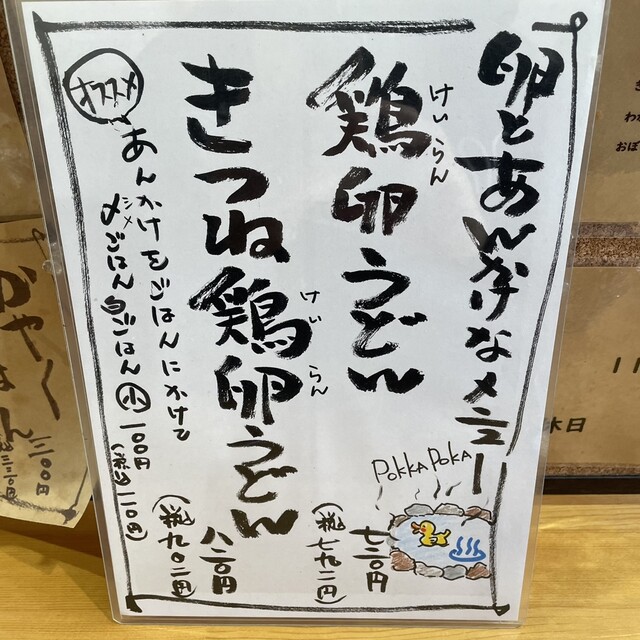 卵とあんかけなメニュー
鶏卵うどん
けいらん
七二〇円
(税七九二円)
POKKA POKA
きつね鶏卵うどん
けいらん
八二〇円
(税九〇二円)
オススメ
あんかけをごはんにかけて
〆ごはん 白ごはん 小 一〇〇円
シメ
(税込一一〇円)
休日
11